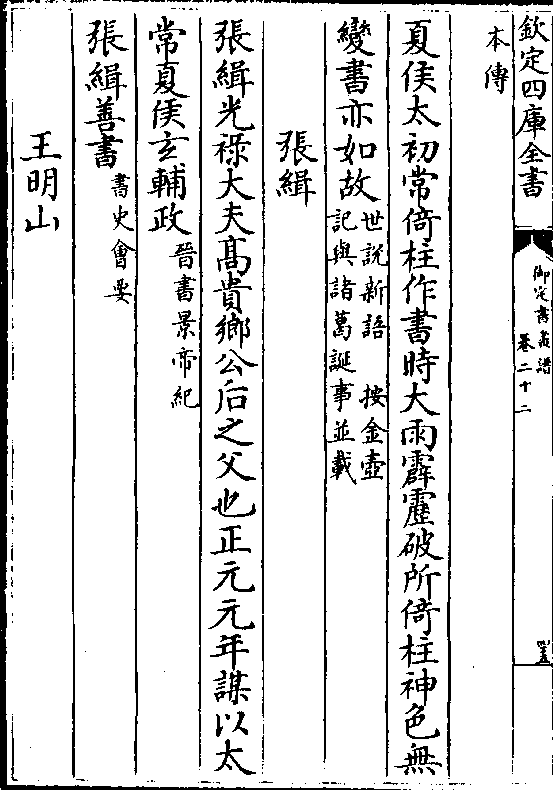 欽定四庫全書
御定書畫譜
卷二十二
本傳
夏侯太初常倚柱作書時大雨霹靂破所倚柱神色無
變書亦如故世說新語　按金壺
記與諸葛誕事並載
張緝
張緝光祿大夫髙貴鄉公后之父也正元元年謀以太
常夏侯玄輔政晉書景帝紀
張緝善書書史會要
王明山